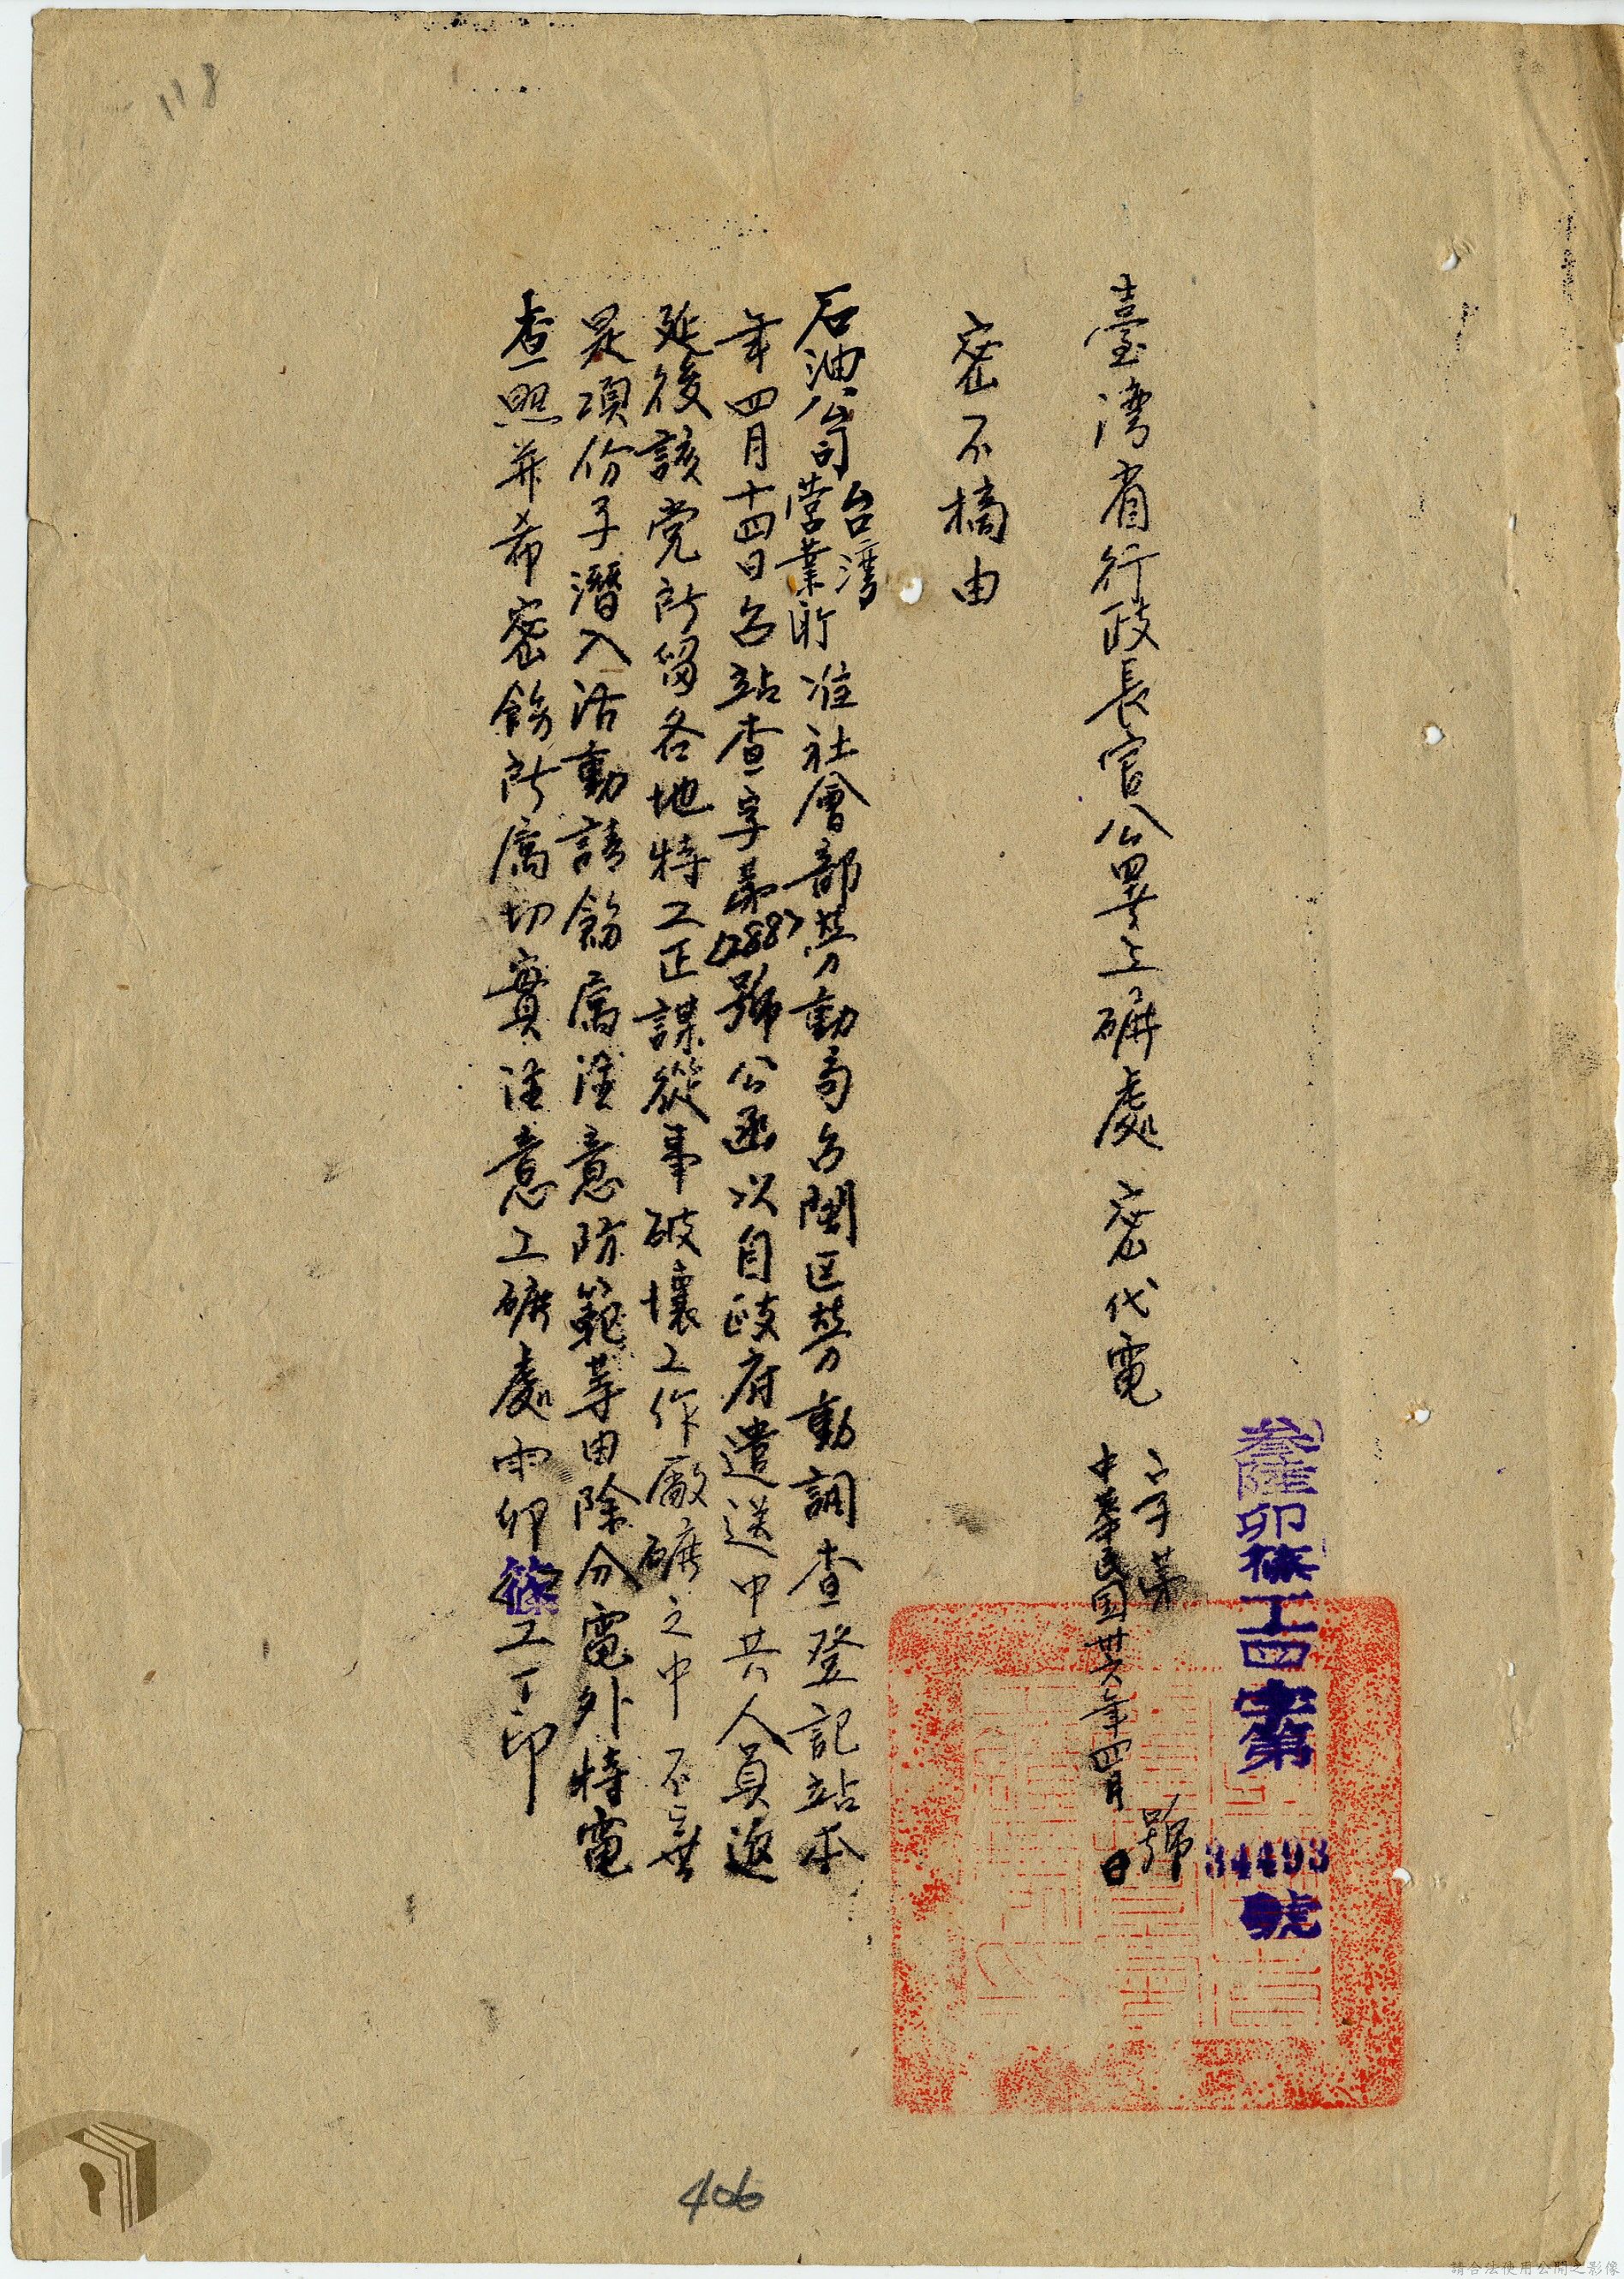 118
叁陸卯篠工四字第34493號
臺湾省行政長官公署工礦處 密代電
字第 號
中華民国卅六年四月 日
密不摘由
石油公司台湾營業所准社會部劳動局台閩区劳動調查登記站本
年四月十四日台站查字第(288)號公函以自政府遣送中共人員返
延後該党所留各地特工正謀從事破壞工作廠礦之中不無
是項份子潛入活動請飭属注意防範等由除分電外特電
查照并希密飭所属切實注意工礦處卯篠工印
406
請合法使用公開之影像